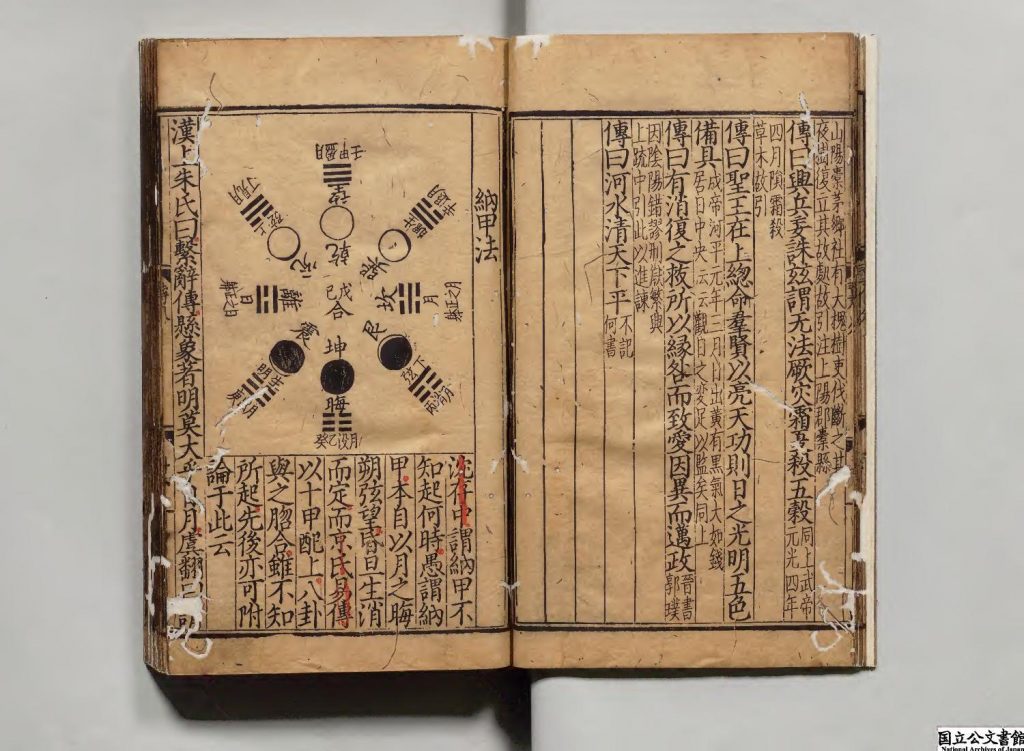 山陽橐茅鄉社有大槐樹吏伐斷之其
夜樹復立其故處故引注上陽郡橐縣
傳曰興兵妄誅茲謂无法厥灾霜夏殺五穀
同上武帝
元光四年
四月隕霜殺
草木故引
傳曰聖王在上緫命羣賢以亮天功則日之光明五色
備具
成帝河平元年二月日出黄有黑氣大如錢
居日中央云云觀日之變足以監矣同上
傳曰有消復之救所以縁咎而致愛因異而邁政
晉書
郭璞
因陰陽錯謬刑獄繁興
上䟽中引此以進諫
傳曰河水清天下平
不記
何書
納甲法
壬甲盈月
望
乾
兌
上弦
巽
艮
下弦
坎
月
離
日
戊
己
合
震
生明
坤
晦
癸乙没月
沈存中謂納甲不
知起何時愚謂納
甲本自以月之晦
朔弦望昏旦生消
而定而京氏易傳
以十甲配上八卦
與之脗合雖不知
所起先後亦可附
論于此云
漢上朱氏曰繫辭傳懸象著明莫大乎日月虞翻曰
国立公文書館
National Archives of Japan